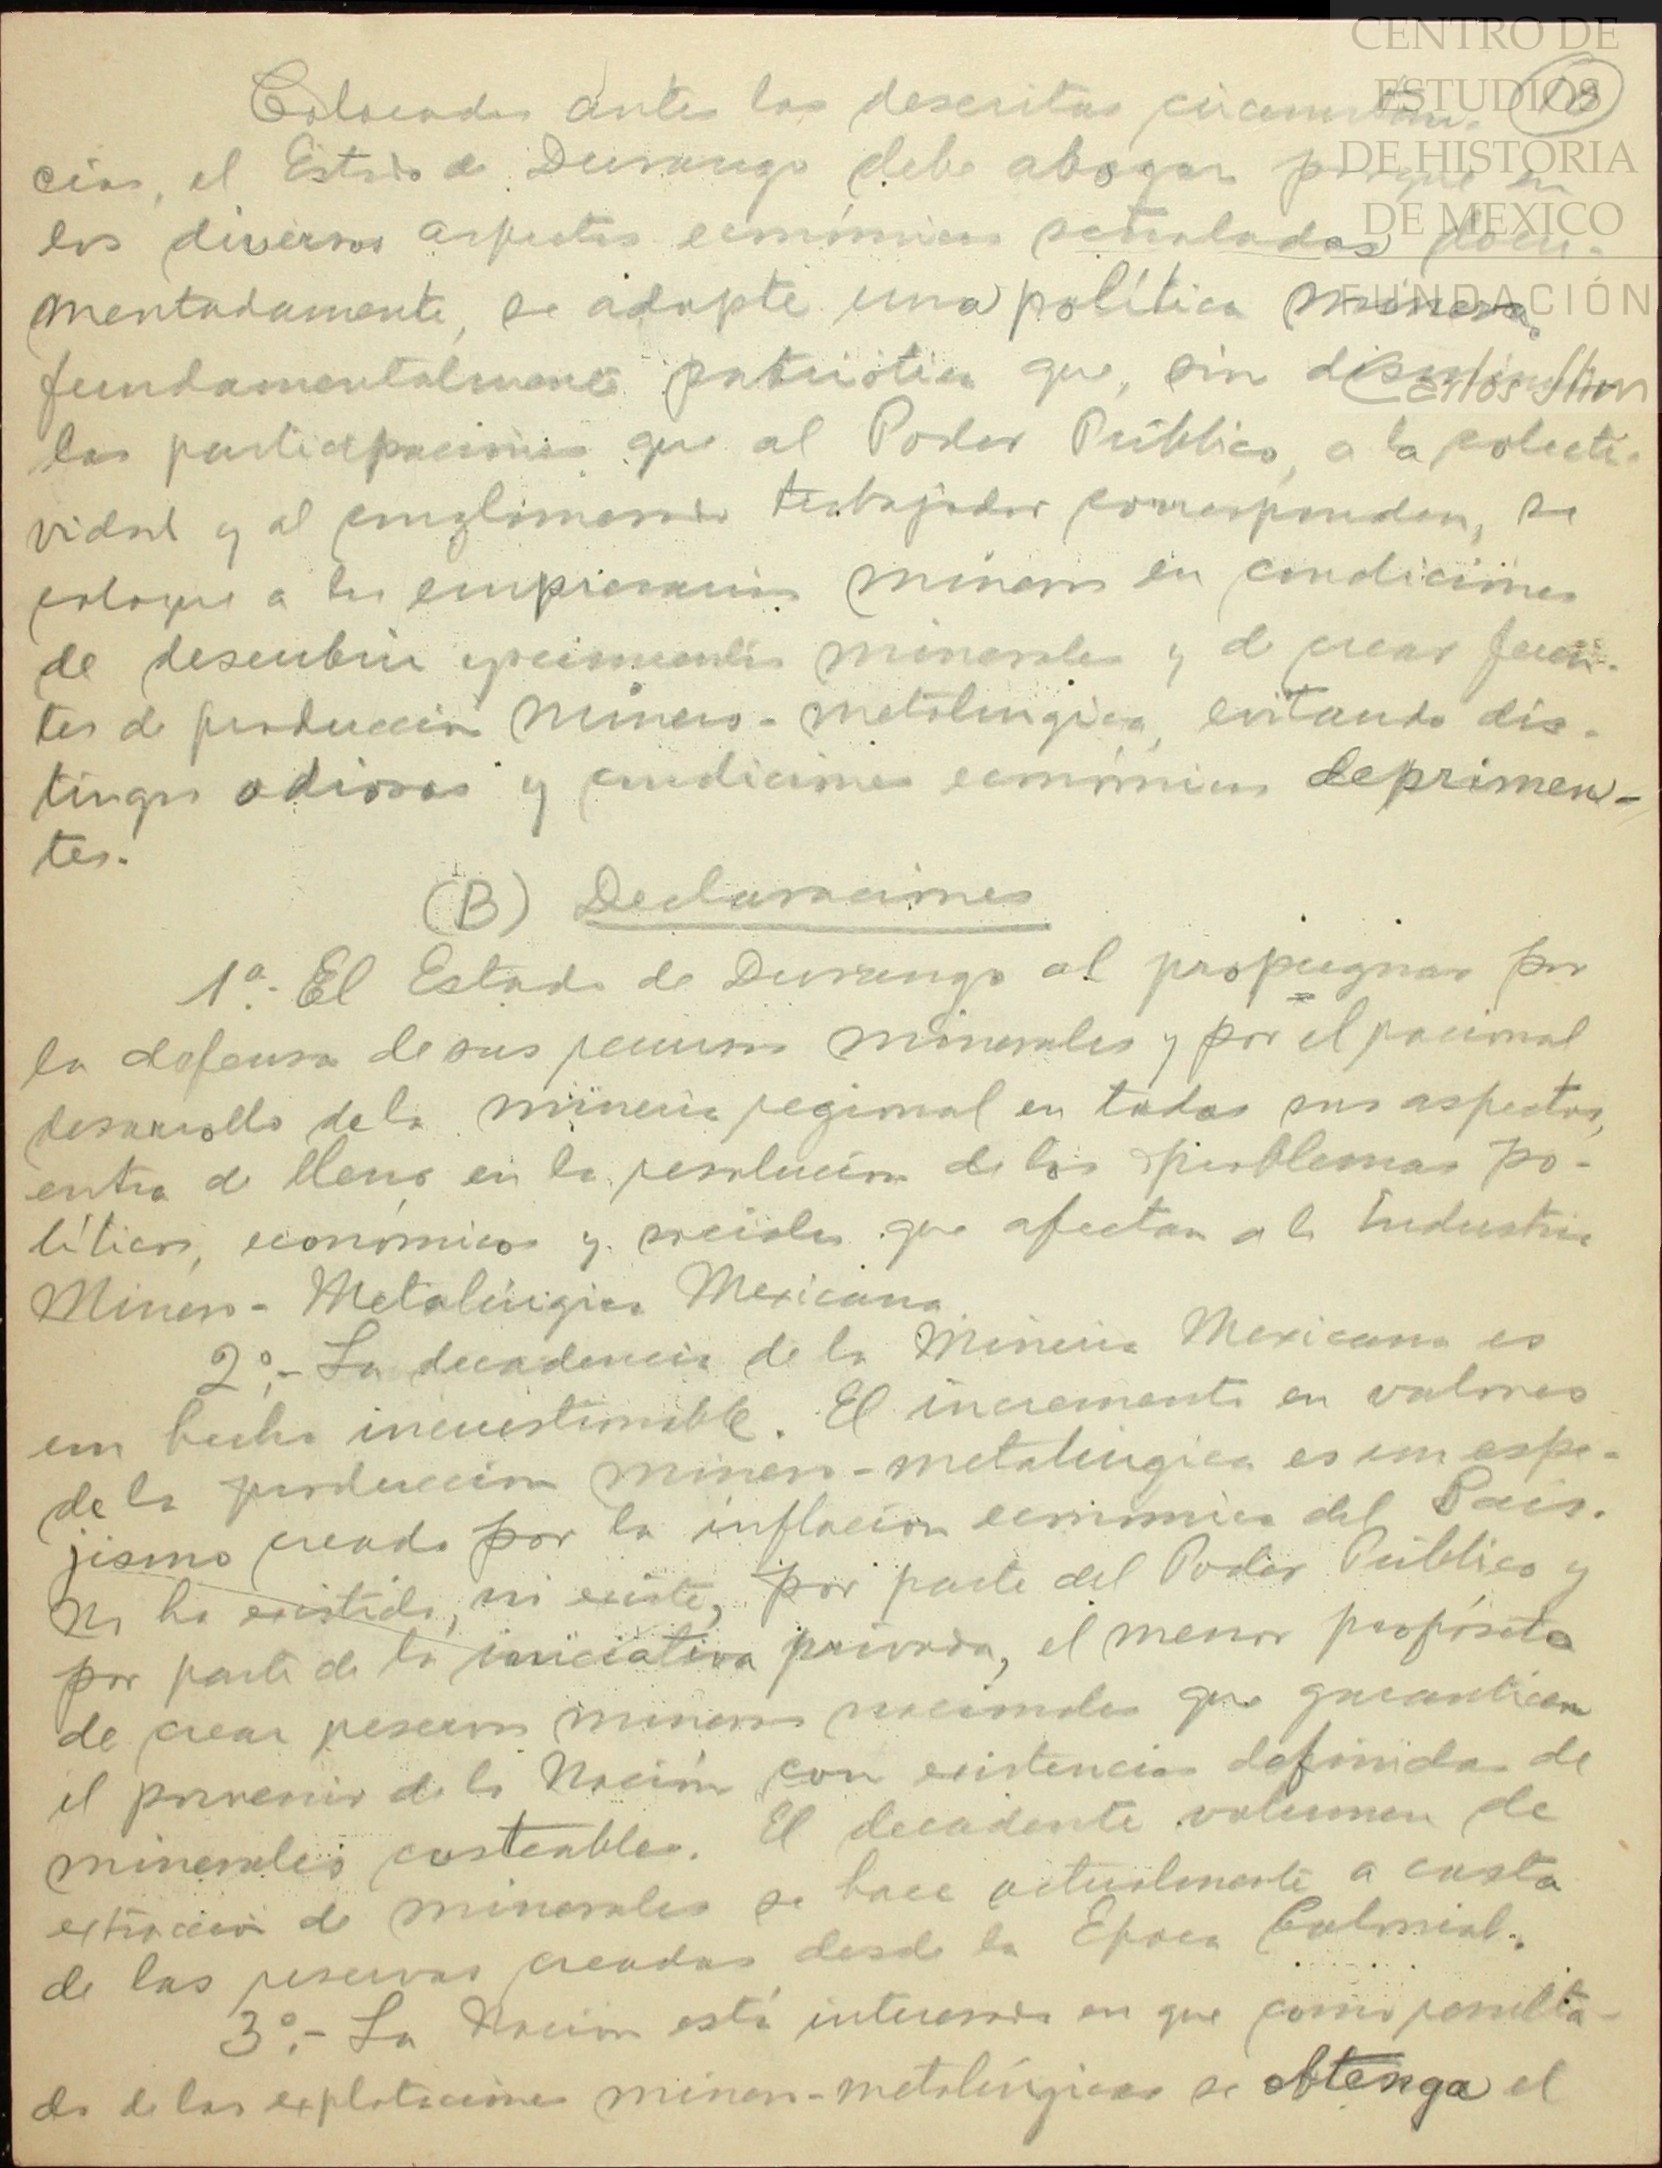 CENTRO DE
ESTUDIOS
DE HISTORIA
DE MEXICO
FUNDACIÓN
Carlos Slim
Colocados antes las descritas circunstan-
cias, el Estado de Durango debe abogar porque en
los diversos aspectos económicos señalados docu-
mentadamente, se adopte una política minera,
fundamentalmente patriótica que, sin disminuir
las participaciones que al Poder Público, a la colecti-
vidad y al conglomerado trabajador corresponden, se
coloque a los empresarios mineros en condiciones
de descubrir yacimientos minerales y de crear fuen-
tes de producción minero-metalúrgica, evitando dis-
tingos odiosos y condiciones económicas deprimen-
tes.
(B) Declaraciones
1ª.- El Estado de Durango al propugnar por
la defensa de sus recursos minerales y por el racional
desarrollo de la minería regional en todos sus aspectos,
entra de lleno en la resolución de los problemas po-
líticos, económicos y sociales que afectan a la Industria
Minero-Metalúrgica Mexicana.
2ª.- La decadencia de la Minería Mexicana es
un hecho incuestionable. El incremento en valores
de la producción minero-metalúrgica es un espe-
jismo creado por la inflación económica del País.
No ha existido, ni existe, por parte del Poder Público y
por parte de la iniciativa privada, el menor propósito
de crear reservas mineras nacionales que garanticen
el porvenir de la Nación con existencias definidas de
minerales costeables. El decadente volumen de
extracción de minerales se hace actualmente a costa
de las reservas creadas desde la Epoca Colonial.
3ª.- La Nación está interesada en que como resulta-
do de las explotaciones minero-metalúrgicas se obtenga el